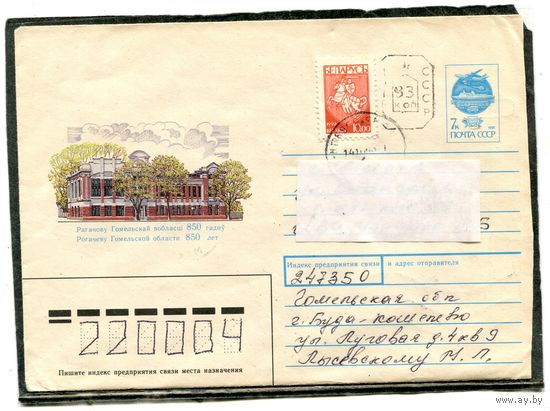 БЕЛАРУСЬ
10.00
1992
СССР
83
коп
7к
ПОЧТА СССР
Рагачову Гомельскай вобласці 850 гадоў
Рогачеву Гомельской области 850 лет
Индекс предприятия связи и адрес отправителя
247350
Гомельская обл
г. Буда-Кошелево
ул. Луговая д.4 кв 9
Лысевскому М. П.
220004
Пишите индекс предприятия связи места назначения
www.ay.by